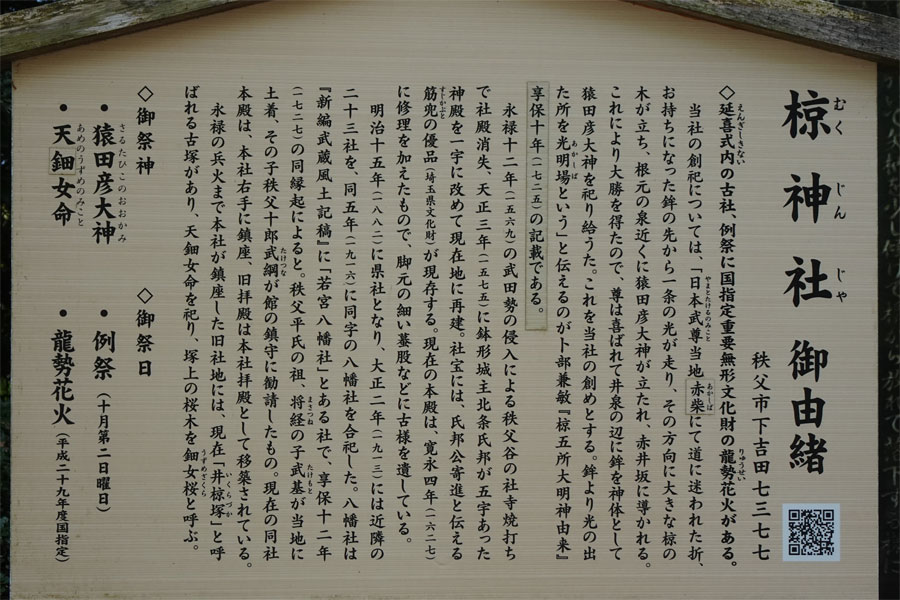 椋神社御由緒
秩父市下吉田七三七七
◇延喜式内の古社、例祭に国指定重要無形文化財の龍勢花火がある。
当社の創祀については、「日本武尊当地赤柴にて道に迷われた折、
お持ちになった鉾の先から一条の光が走り、その方向に大きな椋の
木が立ち、根元の泉近くに猿田彦大神が立たれ、赤井坂に導かれる。
これにより大勝を得たので、尊は喜ばれて井泉の辺に鉾を神体として
猿田彦大神を祀り給うた。これを当社の創めとする。鉾より光の出
た所を光明場という」と伝えるのが卜部兼敏『椋五所大明神由来』
享保十年(一七二五)の記載である。
永禄十二年(一五六九)の武田勢の侵入による秩父谷の社寺焼打ち
で社殿消失、天正三年(一五七五)に鉢形城主北条氏邦が五宇あった
神殿を一宇に改めて現在地に再建。社宝には、氏邦公寄進と伝える
筋兜の優品(埼玉県文化財)が現存する。現在の本殿は、寛永四年(一六二七)
に修理を加えたもので、脚元の細い蟇股などに古様を遺している。
明治十五年(一八八二)に県社となり、大正二年(一九一三)には近隣の
二十三社を、同五年(一九一六)に同字の八幡社を合祀した。八幡社は
『新編武蔵風土記稿』に「若宮八幡社」とある社で、享保十二年
(一七二七)の同縁起によると。秩父平氏の祖、将経の子武基が当地に
土着、その子秩父十郎武綱が館の鎮守に勧請したもの。現在の同社
本殿は、本社右手に鎮座、旧拝殿は本社拝殿として移築されている。
永禄の兵火まで本社が鎮座した旧社地には、現在「井椋塚」と呼
ばれる古塚があり、天鈿女命を祀り、塚上の桜木を鈿女桜と呼ぶ。
◇御祭神 ◇御祭日
・猿田彦大神 ・例祭(十月第二日曜日)
・天鈿女命 ・龍勢花火(平成二十九年度国指定)